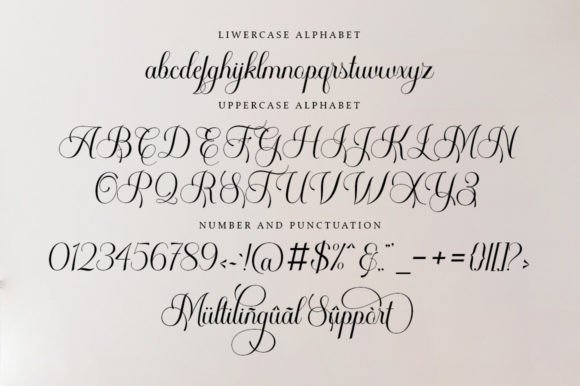 LIWERCASE ALPHABET
abcdefghijklmnopqrstuvwxyz
UPPERCASE ALPHABET
ABCDEFGHIJKLMN
OPQRSTUVWXYZ
NUMBER AND PUNCTUATION
0123456789<~`!@#$%^&.¨_-+={}[]?>
Mültilingûãl Sûppòrt